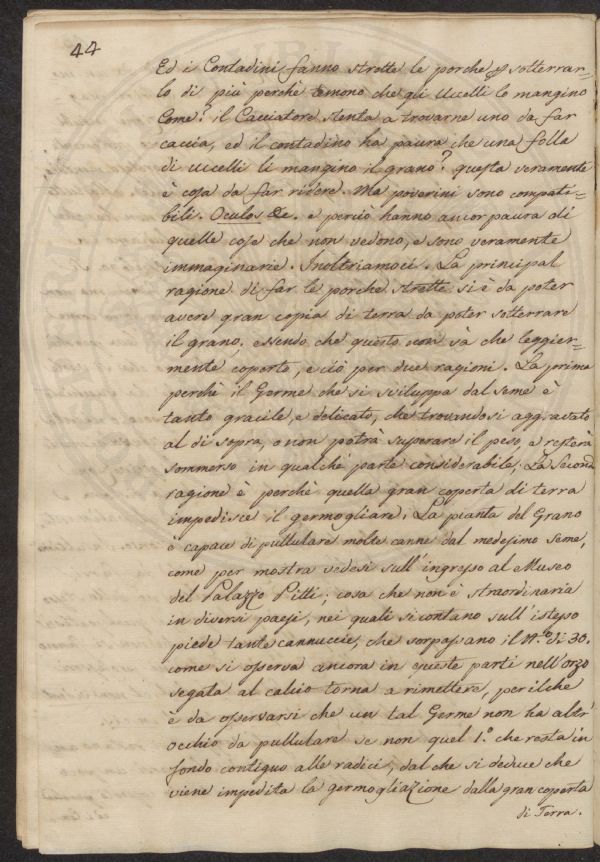 44
Ed i Contadini fanno strette le porche p sotterrar=
lo di più perchè temono che gli Uccelli lo mangino
Come? il Cacciatore stenta a trovarne uno da far
caccia, ed il contadino ha paura che una folla
di uccelli li mangino il grano? questa veramente
è cosa da far ridere. Ma poverini sono compati=
bili. Oculos &c. e perciò hanno ancor paura di
quelle cose che non vedono, e sono veramente
immaginarie. Inoltriamoci. La principal
ragione di far le porche strette si è da poter
avere gran copia di terra da poter sotterrare
il grano, essendo che questo non và che leggier=
mente coperto, e ciò per due ragioni. La prima
perchè il Germe che si sviluppa dal seme è
tanto gracile, e delicato, che trovandosi aggravato
al di sopra, o non potrà superare il peso e resterà
sommerso in qualche parte considerabile. La Seconda
ragione è perchè quella gran coperta di terra
impedisce il germogliare. La pianta del Grano
è capace di pullulare molte canne dal medesimo seme,
come per mostra vedesi sull'ingresso al Museo
del Palazzo Pitti; cosa che non è straordinaria
in diversi paesi, nei quali si contano sull'istesso
piede tante cannuccie, che sorpassano il N.º di 30.
come si osserva ancora in queste parti nell'orzo
segata al calcio torna a rimettere, perilche
è da osservarsi che un tal Germe non ha altr'
occhio da pullulare se non quel 1.º che resta in
fondo contiguo alle radici, dal che si deduce che
viene impedita la germogliazione dalla gran coperta
di Terra.